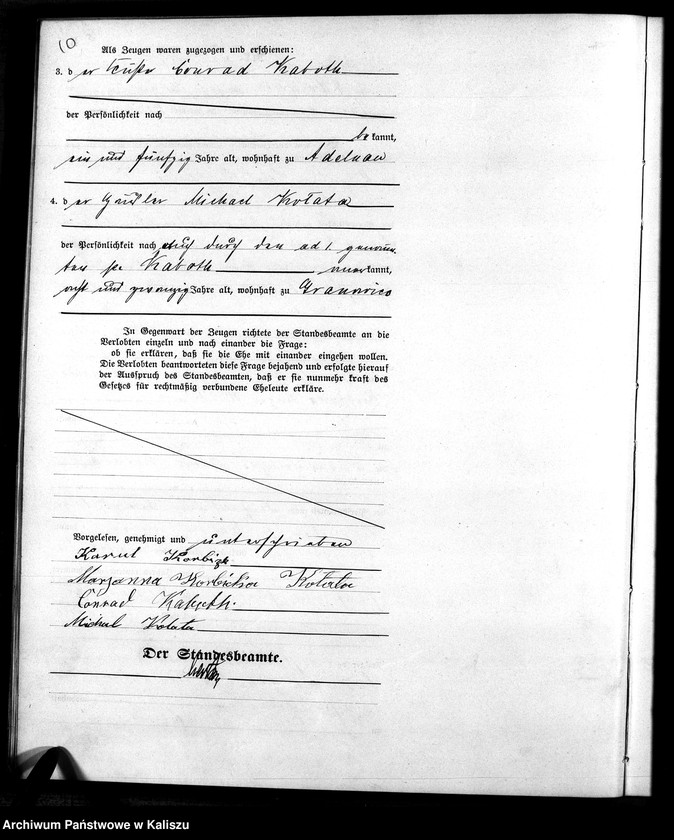 10
Als Zeugen waren zugezogen und erschienen:
3. der Conrad Kaboth
der Persönlichkeit nach
bekannt,
ein und fünfzig Jahre alt, wohnhaft zu Adelnau
4. der Michael Kołata
der Persönlichkeit nach durch den ad 1
Kaboth anerkannt,
acht und zwanzig Jahre alt, wohnhaft zu
In Gegenwart der Zeugen richtete der Standesbeamte an die
Verlobten einzeln und nach einander die Frage:
ob sie erklären, daß sie die Ehe mit einander eingehen wollen.
Die Verlobten beantworteten diese Frage bejahend und erfolgte hierauf
der Ausspruch des Standesbeamten, daß er sie nunmehr kraft des
Gesetzes für rechtmäßig verbundene Eheleute erkläre.
Vorgelesen, genehmigt und unterschrieben
Marzanna Kołata
Conrad Kaboth.
Michal Kolata
Der Standesbeamte.
Archiwum Państwowe w Kaliszu